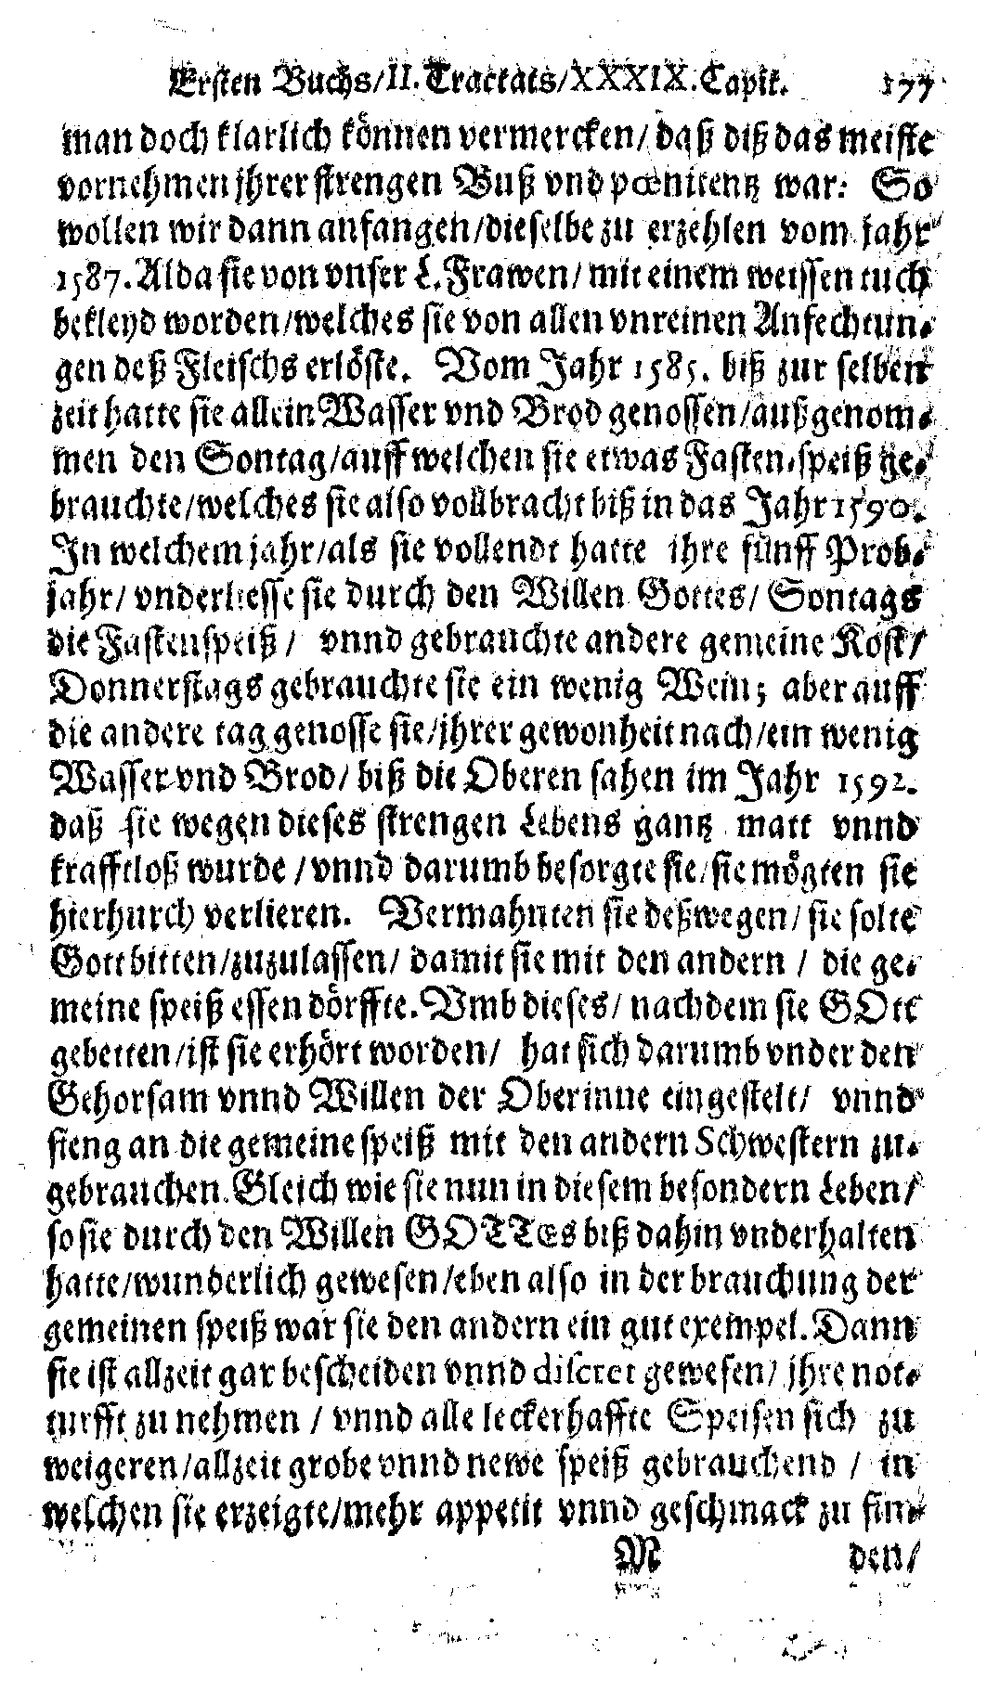 Ersten Buchs/II. Tractats/XXXIX. Capit. 177
man doch klarlich können vermercken/ daß diß das meiste
vornehmen jhrer strengen Buß vnd pœnitentz war: So
wollen wir dann anfangen/dieselbe zu erzehlen vom jahr
1587. Alda sie von vnser L. Frawen/ mit einem weissen tuch
bekleyd worden/welches sie von allen vnreinen Anfechtun-
gen deß Fleischs erlöste. Vom Jahr 1585. biß zur selben
zeit hatte sie allein Wasser vnd Brod genossen/außgenom-
men den Sontag/auff welchen sie etwas Fasten-speiß ge-
brauchte/welches sie also vollbracht biß in das Jahr 1590.
In welchem jahr/als sie vollendt hatte ihre fünff Prob-
jahr/ vnderliesse sie durch den Willen Gottes/ Sontags
die Fastenspeiß/ vnnd gebrauchte andere gemeine Kost/
Donnerstags gebrauchte sie ein wenig Wein; aber auff
die andere tag genosse sie/jhrer gewonheit nach/ein wenig
Wasser vnd Brod/ biß die Oberen sahen im Jahr 1592.
daß sie wegen dieses strengen Lebens gantz matt vnnd
krafftloß wurde/vnnd darumb besorgte sie/sie mögten sie
hierhurch verlieren. Vermahnten sie deßwegen/ sie solte
Gott bitten/zuzulassen/ damit sie mit den andern / die ge-
meine speiß essen dörffte. Vmb dieses/ nachdem sie GOtt
gebetten/ist sie erhört worden/ hat sich darumb vnder den
Gehorsam vnnd Willen der Oberinne eingestelt/ vnnd
fieng an die gemeine speiß mit den andern Schwestern zu-
gebrauchen. Gleich wie sie nun in diesem besondern Leben/
so sie durch den Willen GOTTES biß dahin vnderhalten
hatte/wunderlich gewesen/eben also in der brauchung der
gemeinen speiß war sie den andern ein gut exempel. Dann
sie ist allzeit gar bescheiden vnnd discret gewesen/ jhre not-
turfft zu nehmen / vnnd alle leckerhaffte Speisen sich zu
weigeren/allzeit grobe vnnd newe speiß gebrauchend / in
welchen sie erzeigte/mehr appetit vnnd geschmack zu fin-
M den/